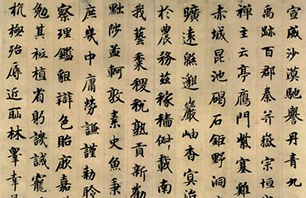 宣威沙漠馳譽丹青九
禹跡百郡秦并嶽宗恒
禪主云亭鴈門紫塞雞
赤城昆池碣石鉅野洞
曠遠緜邈巖岫杳冥治
於農務茲稼穡俶載南
我藝黍稷稅熟貢新勸
黜陟孟軻敦素史魚秉
庶幾中庸勞謙謹勑聆
察理鑑貌辯色貽厥嘉
勉其祗植省躬譏誡寵
抗極殆辱近恥林皐幸